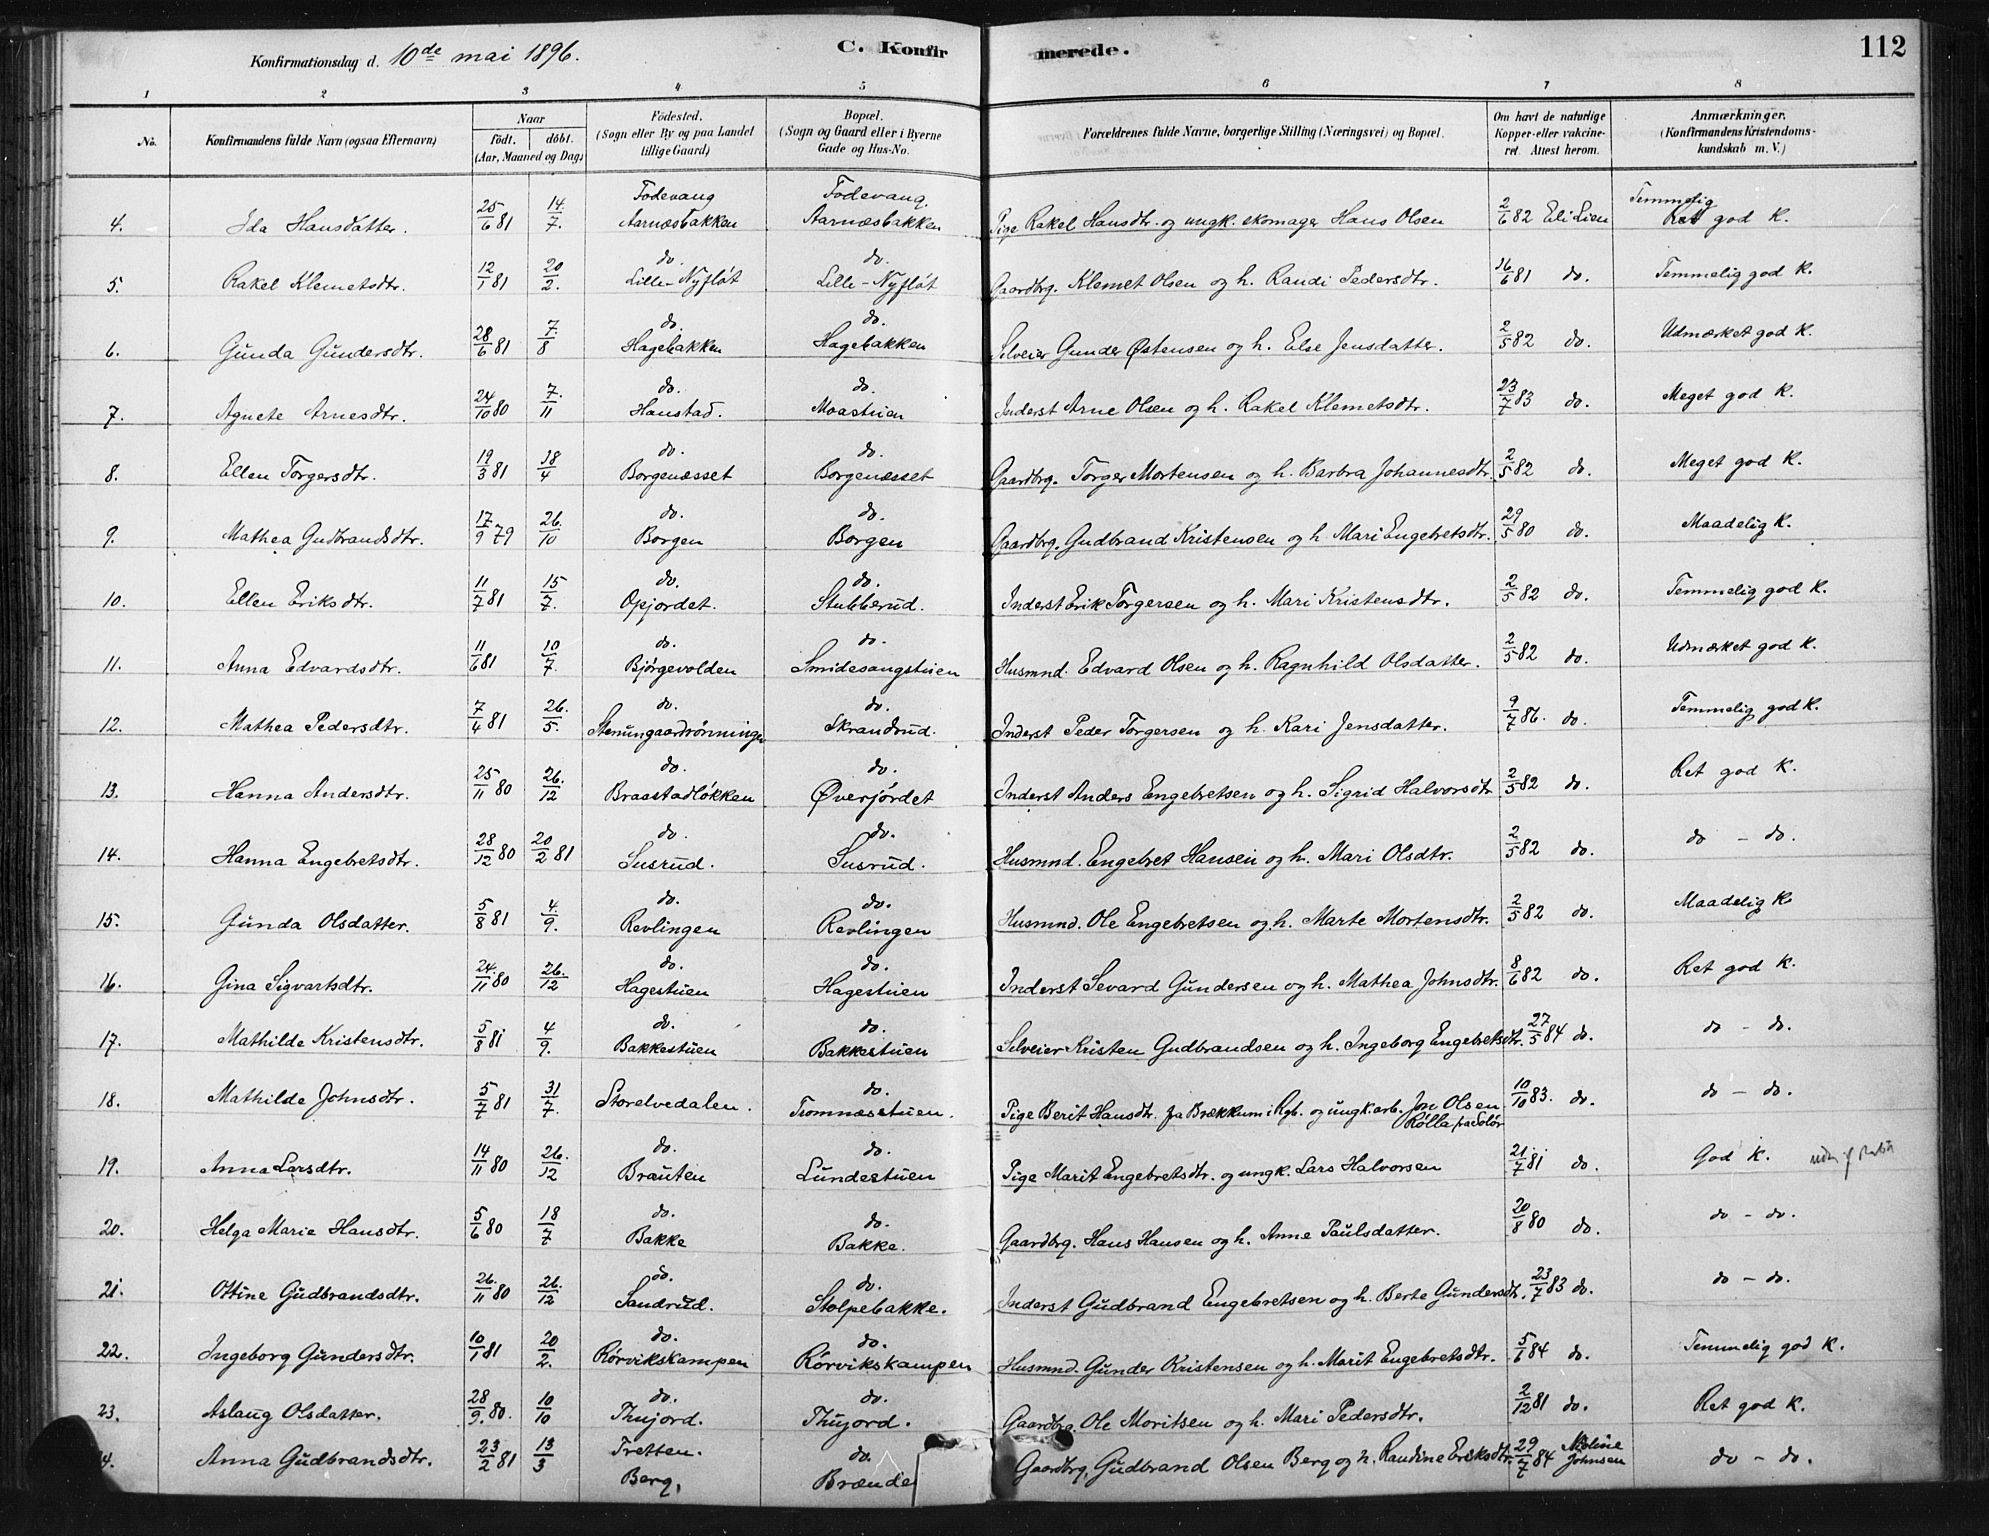 Konfirmationsdag d. 10de mai 1896.
C. Konfirmerede.
112
1 2 3 4 5 6 7 8
No. Konfirmandens fulde Navn (ogsaa Efternavn) Naar födt. döbt. (Aar, Maaned og Dag) Födested. (Sogn eller By og paa Landet tillige Gaard) Bopæl. (Sogn og Gaard eller i Byerne Gade og Hus-No. Forældrenes fulde Navne, borgerlige Stilling (Næringsvei) og Bopæl. Om havt de naturlige Kopper eller vakcineret. Attest herom. Anmærkninger. (Konfirmandens Kristendomskundskab m. V.)
4. Ida Hansdatter. 25/6 81 14/7. Fodevang Aarnæsbakken Fodevang. Aarnæsbakken Pige Rakel Hansdtr. og ungk. skomager Hans Olsen 2/6 82 Eli Lien Temmelig god K.
5. Rakel Klemetsdtr. 12/1 81 20/2. do. Lille-Nyflöt do. Lille-Nyflöt Gaardbrg. Klemet Olsen og h. Randi Pedersdtr. 16/6 81 do. Temmelig god K.
6. Gunda Gundersdtr. 28/6 81 7/8 do. Hagebakken do. Hagebakken Selveier Gunder Østensen og h. Else Jensdatter. 2/5 82 do. Udmærket god K.
7. Agnete Arnesdtr. 24/10 80 7/11 do. Hanstad. do. Moastuen Inderst Arne Olsen og h. Rakel Klemetsdtr. 23/7 83 do. Meget god K.
8. Ellen Torgersdtr. 19/3 81 18/4 do. Borgenæsset do. Borgenæsset Gaardbrg. Torger Mortensen og h. Barbra Johannesdtr. 2/5 82 do. Meget god K.
9. Mathea Gudbrandsdtr. 17/9 79 26/10 do. Borgen do. Borgen Gaardbrg. Gudbrand Kristensen og h. Mari Engebretsdtr. 29/5 80 do. Maadelig K.
10. Ellen Eriksdtr. 11/7 81 15/7. do. Opjordet. do. Stubberud. Inderst Erik Torgersen og h. Mari Kristensdtr. 2/5 82 do. Temmelig god K.
11. Anna Edvardsdtr. 11/6 81 10/7. do. Bjørgevolden do. Smidesangstuen Husmnd. Edvard Olsen og h. Ragnhild Olsdatter. 2/5 82 do. Udmærket god K.
12. Mathea Pedersdtr. 7/4 81 26/5. do. Stenungaardrönningen do. Skrandrud. Inderst Peder Torgersen og h. Kari Jensdatter. 9/7 86. do. Temmelig god K.
13. Hanna Andersdtr. 25/11 80 26/12 do. Braastadlökken do. Øverjördet Inderst Anders Engebretsen og h. Sigrid Halvorsdtr 2/5 82 do. Ret god K.
14. Hanna Engebretsdtr. 28/12 80 20/2 81 do. Susrud. do. Susrud. Husmnd. Engebret Hansen og h. Mari Olsdtr. 2/5 82 do. do - do.
15. Gunda Olsdatter. 5/8 81 4/9. do. Revlingen do. Revlingen Husmnd. Ole Engebretsen og h. Marte Mortensdtr. 2/5 82 do. Maadelig K.
16. Gina Sigvartsdtr. 24/11 80 26/12 do. Hagestuen do. Hagestuen Inderst Sevard Gundersen og h. Mathea Johnsdtr. 8/6 82 do. Ret god K.
17. Mathilde Kristensdtr. 5/8 81 4/9. do. Bakkestuen do. Bakkestuen Selveier Kristen Gudbrandsen og h. Ingeborg Engebretsdtr. 27/5 84 do. do - do.
18. Mathilde Johnsdtr. 5/7 81 31/7. Storelvedalen. do. Tromnæsstuen. Pige Berit Hansdtr. fra Brækkum i Rgb. og ungk. arb. Jon Olsen Rölla fra Solör 10/10 83. do. do - do.
19. Anna Larsdtr. 14/11 80 26/12 do. Brauten do. Lundestuen Pige Marit Engebretsdtr. og ungk. Lars Halvorsen 21/7 81 do. God K.
20. Helga Marie Hansdtr. 5/6 80 18/7 do. Bakke do. Bakke. Gaardbrg. Hans Hansen og h. Anne Paulsdatter. 20/8 80 do. do - do.
21. Ottine Gudbrandsdtr. 26/11 80 26/12 do. Sandrud. do. Stolpebakke. Inderst Gudbrand Engebretsen og h. Berte Gundersdtr. 23/7 83 do. do - do.
22. Ingeborg Gundersdtr. 10/1 81 20/2. do. Rörvikskampen do. Rörvikskampen Husmnd. Gunder Kristensen og h. Marit Engebretsdtr. 5/6 84 do. Temmelig god K.
23. Aslaug Olsdatter. 28/9. 80. 10/10 do. Thujord. do. Thujord. Gaardbrg. Ole Moritsen og h. Mari Pedersdtr. 2/12 81 do. Ret god K.
4. Anna Gudbrandsdtr. 23/2 81 13/3 Tretten. Berg, do. Brænde Gaardbrg. Gudbrand Olsen Berg og h. Randine Eriksdtr. 29/7 84 Nicoline Johnsen do - do.